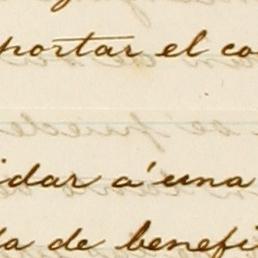 portar el co
idar á una
da de benefi